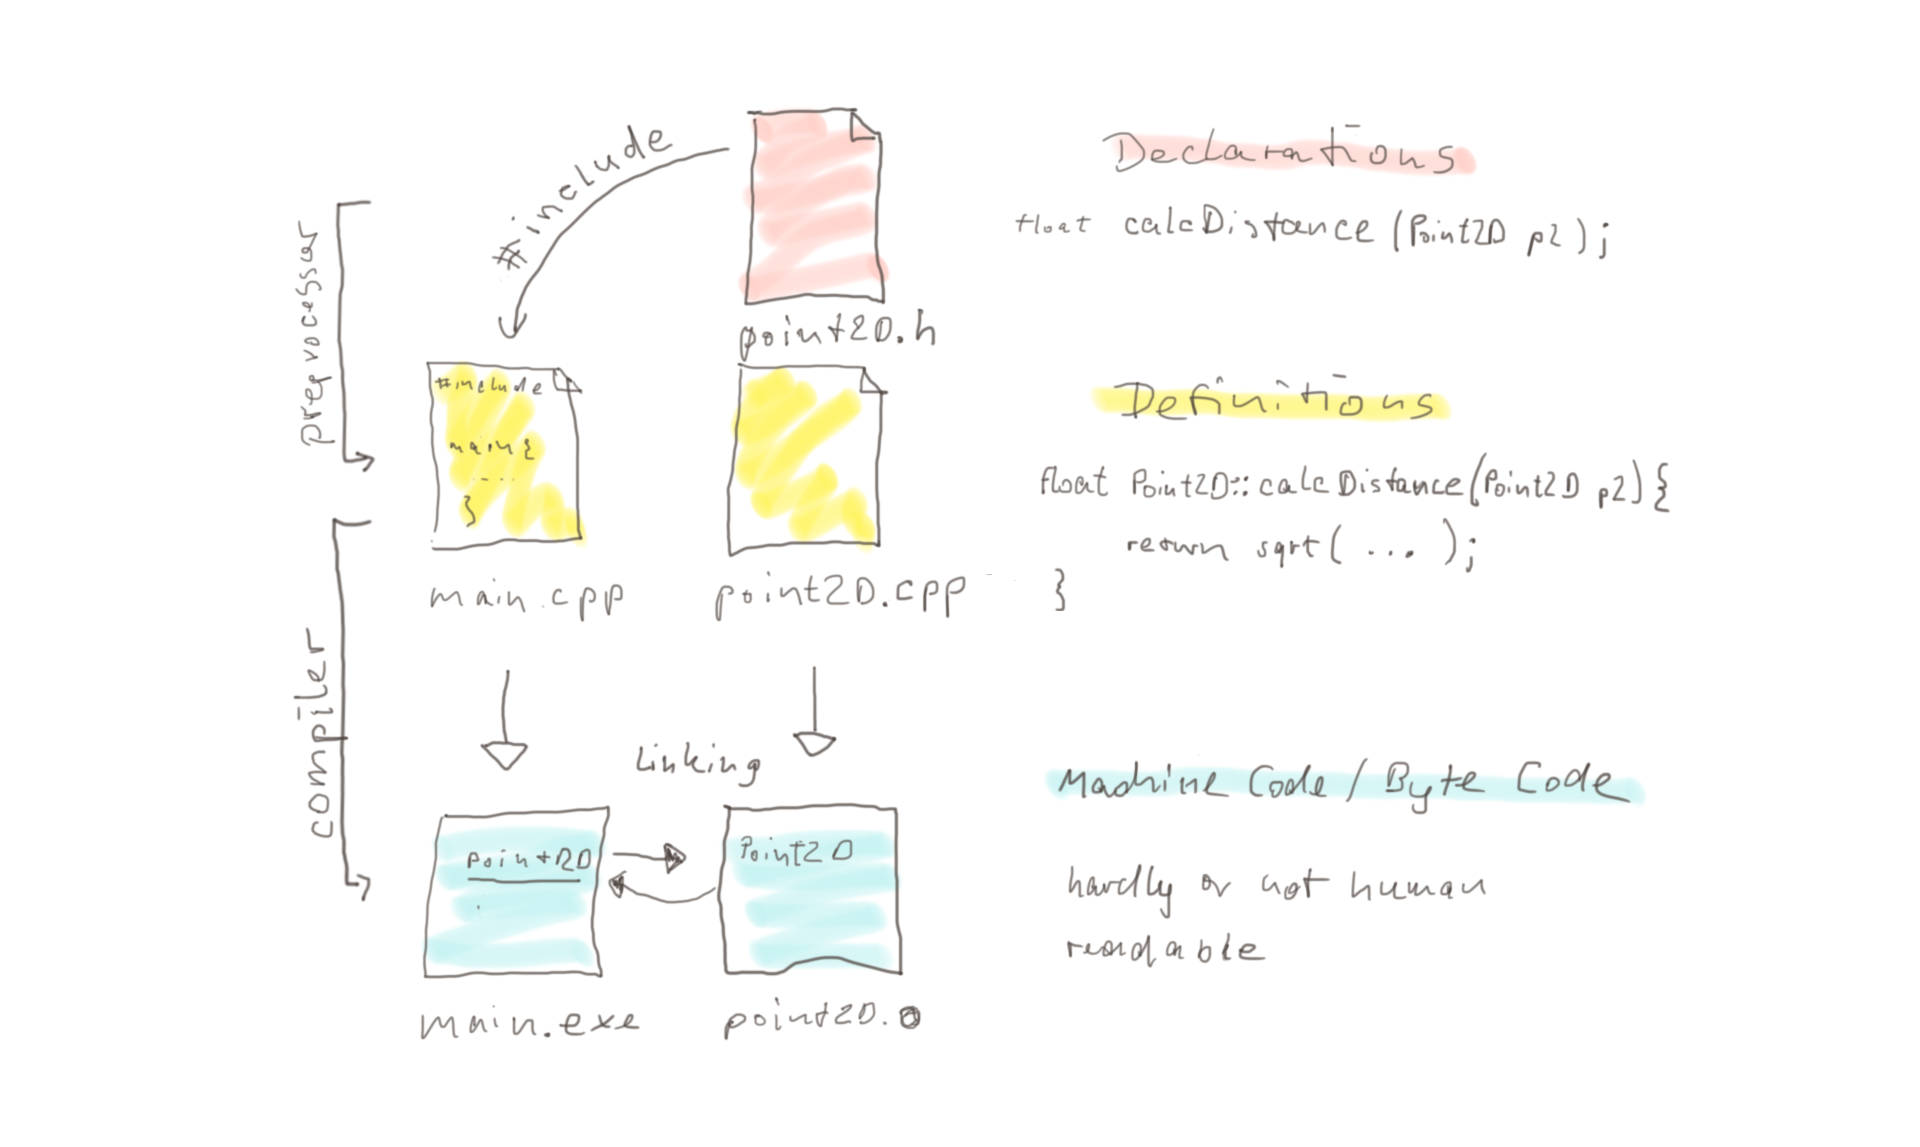 #include
Declarations
float calcDistance (Point2D p2);
point2D.h
preprocessor
#include
main{
....
}
main.cpp
point2D.cpp
Definitions
float Point2D::calcDistance(Point2D p2){
return sqrt( ... );
}
compiler
Linking
Point2D
Point2D
main.exe
point2D.o
Machine Code / Byte Code
hardly or not human
readable